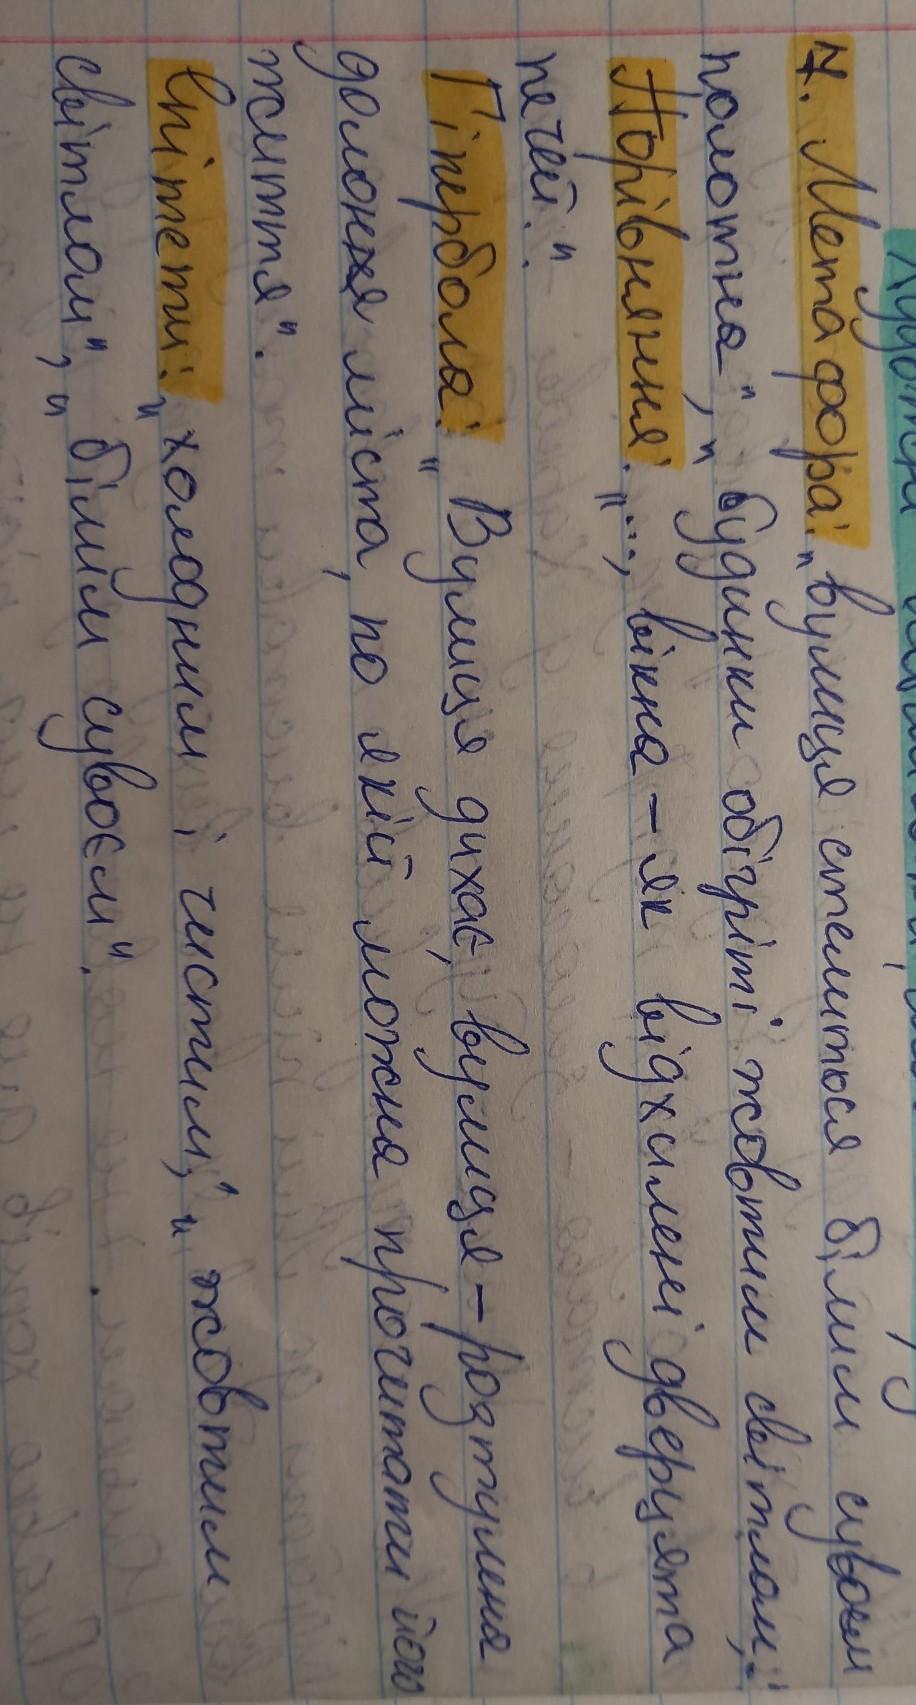 7. Метафора: „вулиця стелиться білим сувоєм
полотна", „будинки обігріті жовтим світлом;"
Порівняння: „..., вікна – як відхилені дверцята
печей".
Гіпербола: „Вулиця дихає, вулиця – розтулена
долоня міста, по якій можна прочитати його
життя".
Епітети: „холодним і чистим", „жовтим
світлом", „білим сувоєм".